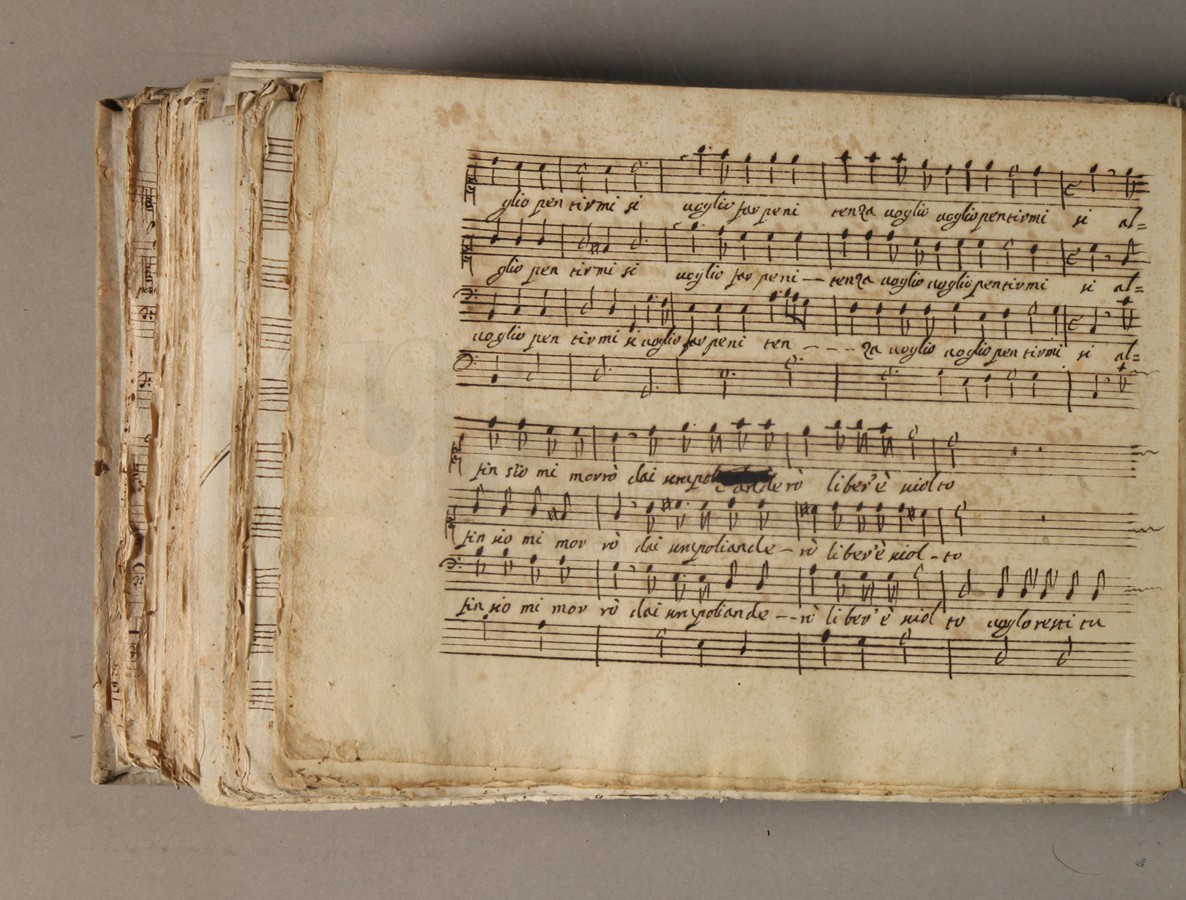 glio pen tirmi si uoglio far peni tenza uoglio uoglio pentirmi si al=
glio pen tirmi si uoglio far peni -- tenza uoglio uoglio pentirmi si al=
uoglio pen tirmi si uoglio far peni ten - - - - za uoglio uoglio pen tirmi si al=
fin s'io mi morrò dai rò liber' è sciolto
fin s'io mi mor rò dai - rò liber' è sciol - to
fin s'io mi mor rò dai -- rò liber' è sciol to uoglio resti tu